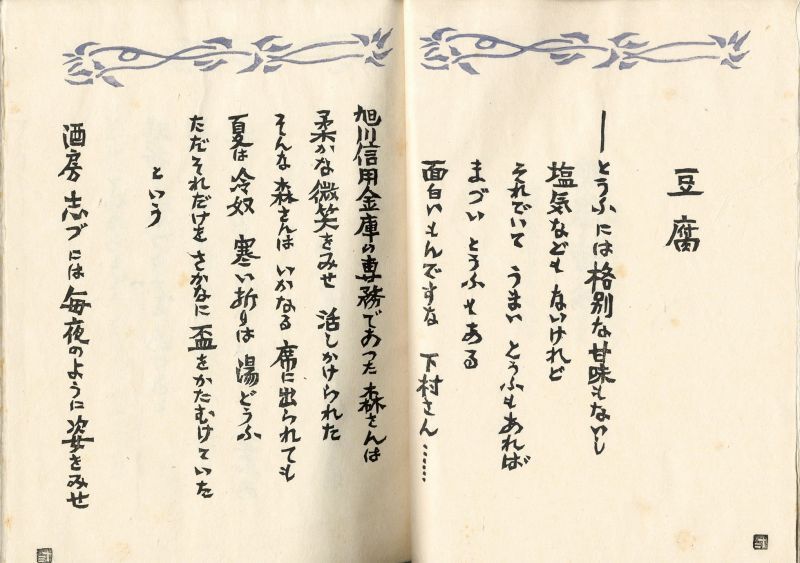 豆腐
―とうふには格別な甘味もないし
塩気などもないけれど
それでいて うまい とうふもあれば
まづい とうふもある
面白いもんですな 下村さん……
旭川信用金庫の専務であった 森さんは
柔かな微笑をみせ 活しかけられた
そんな森さんは いかなる席に出られても
夏は 冷奴 寒い折りは 湯どうふ
ただそれだけを さかなに 盃をかたむけていた
という
酒房 志づには 毎夜のように 姿をみせ